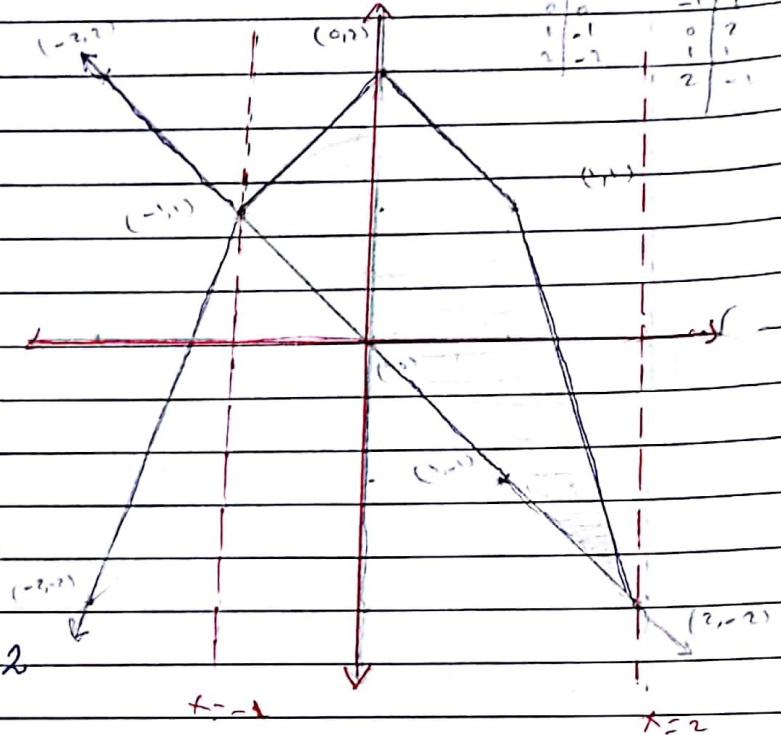 (-2,2)
(0,2)
0 | 0
1 | -1
2 | -2
-1 | 1
0 | 2
1 | 1
2 | -1
(1,1)
(-1,1)
(1,-1)
(-2,-2)
(2,-2)
2
x=-1
x=2